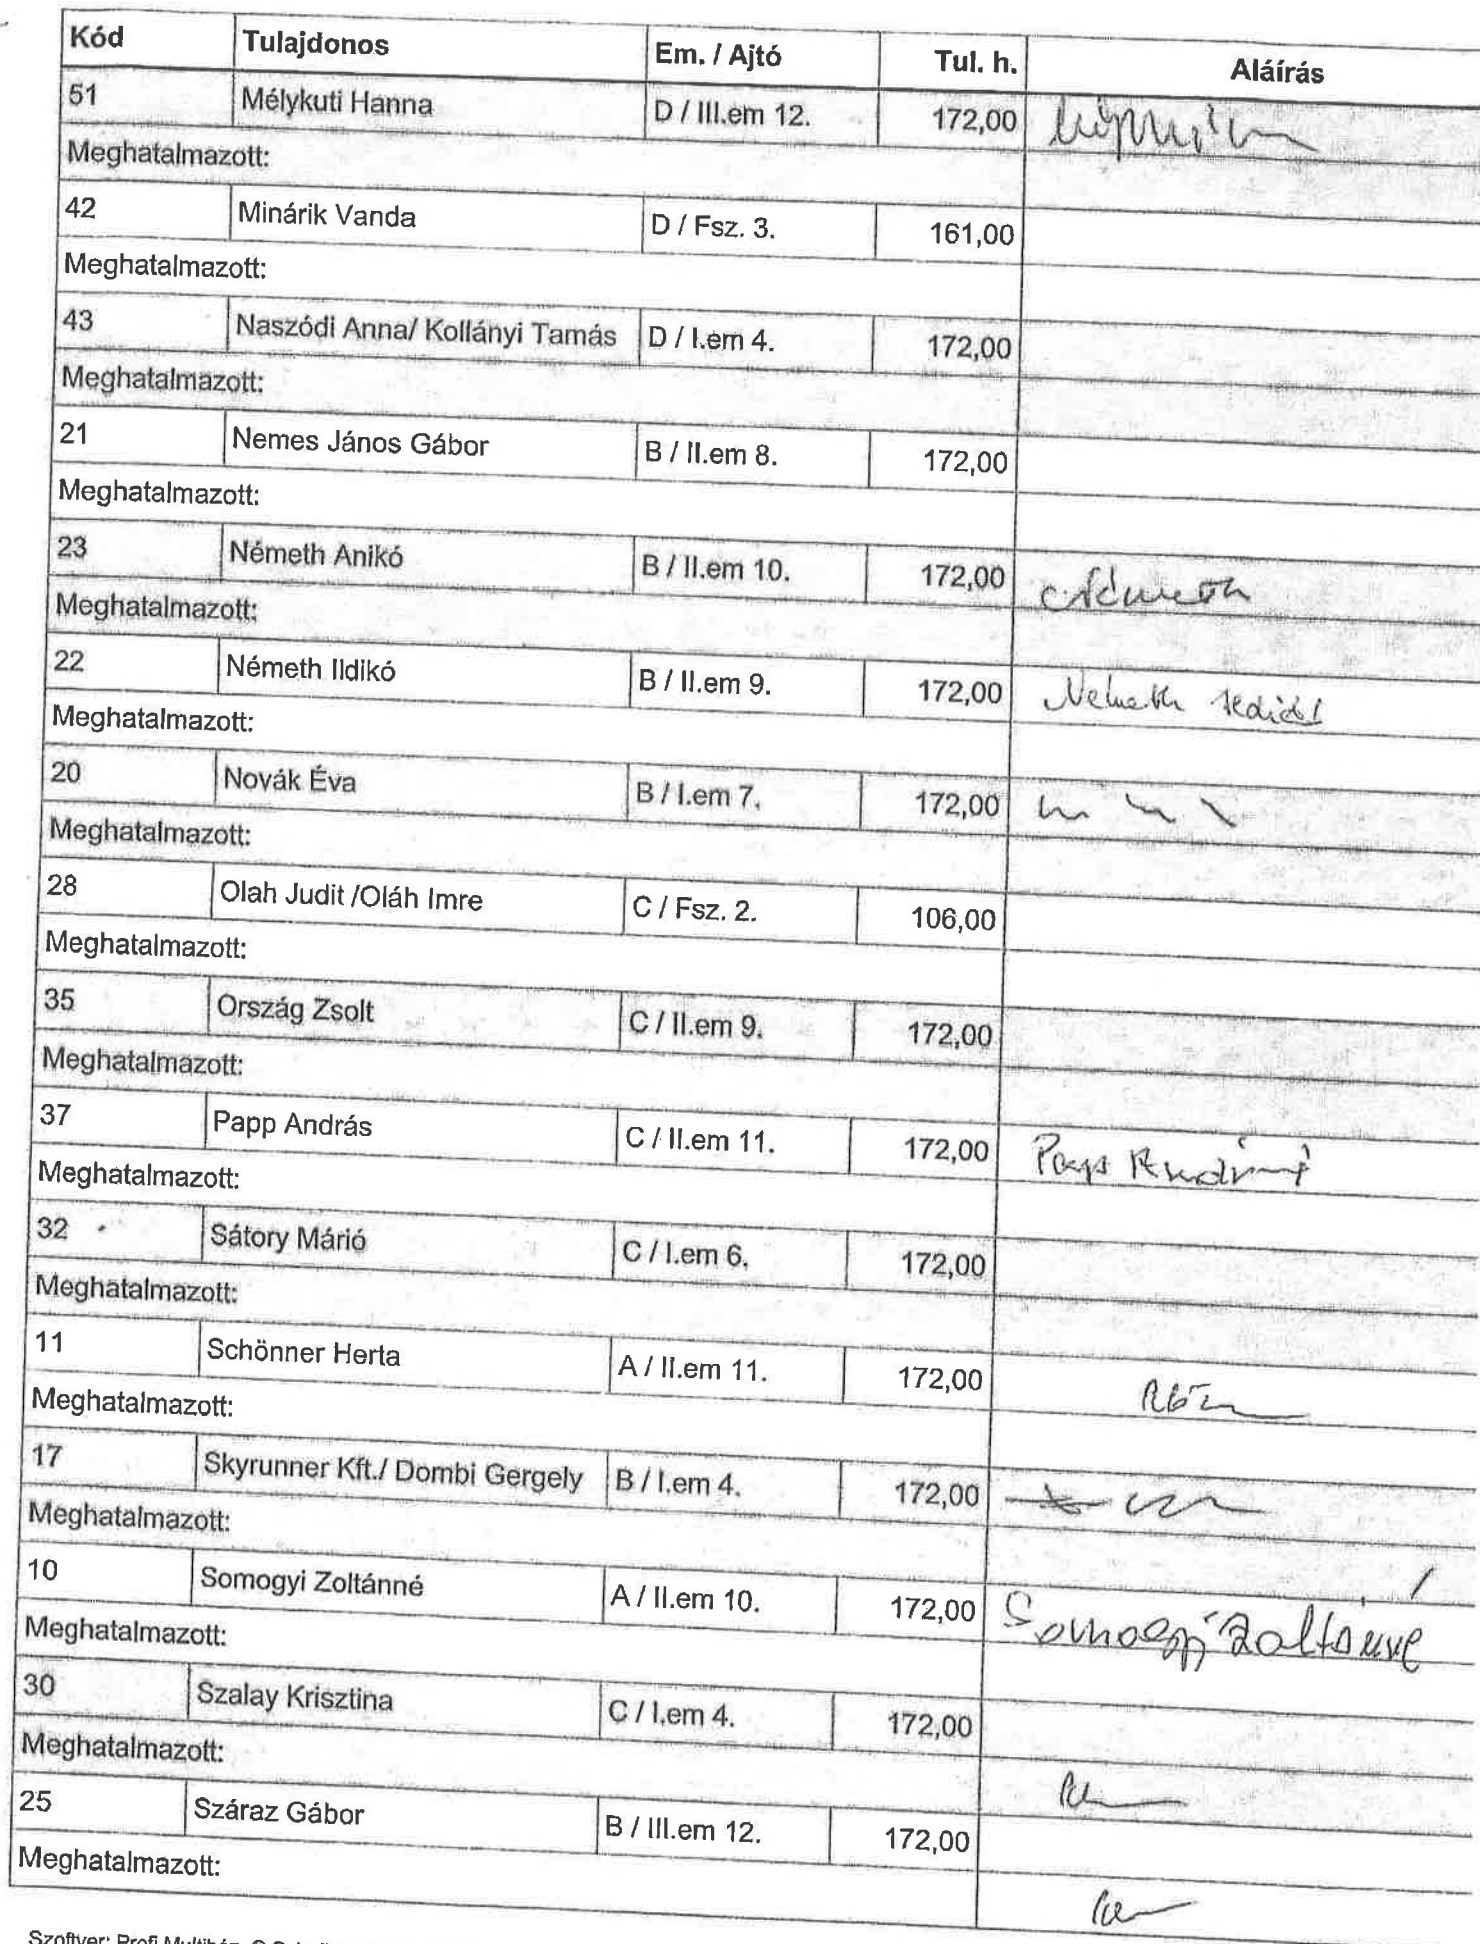 Kód Tulajdonos Em. / Ajtó Tul. h. Aláírás
51 Mélykuti Hanna D / III.em 12. 172,00
Meghatalmazott:
42 Minárik Vanda D / Fsz. 3. 161,00
Meghatalmazott:
43 Naszódi Anna/ Kollányi Tamás D / I.em 4. 172,00
Meghatalmazott:
21 Nemes János Gábor B / II.em 8. 172,00
Meghatalmazott:
23 Németh Anikó B / II.em 10. 172,00 Németh
Meghatalmazott:
22 Németh Ildikó B / II.em 9. 172,00 Németh Ildikó
Meghatalmazott:
20 Novák Éva B / I.em 7. 172,00
Meghatalmazott:
28 Olah Judit /Oláh Imre C / Fsz. 2. 106,00
Meghatalmazott:
35 Ország Zsolt C / II.em 9. 172,00
Meghatalmazott:
37 Papp András C / II.em 11. 172,00 Papp András
Meghatalmazott:
32 Sátory Márió C / I.em 6. 172,00
Meghatalmazott:
11 Schönner Herta A / II.em 11. 172,00
Meghatalmazott:
17 Skyrunner Kft./ Dombi Gergely B / I.em 4. 172,00
Meghatalmazott:
10 Somogyi Zoltánné A / II.em 10. 172,00 Somogyi Zoltánné
Meghatalmazott:
30 Szalay Krisztina C / I.em 4. 172,00
Meghatalmazott:
25 Száraz Gábor B / III.em 12. 172,00
Meghatalmazott:
Szoftver: Profi Multiház